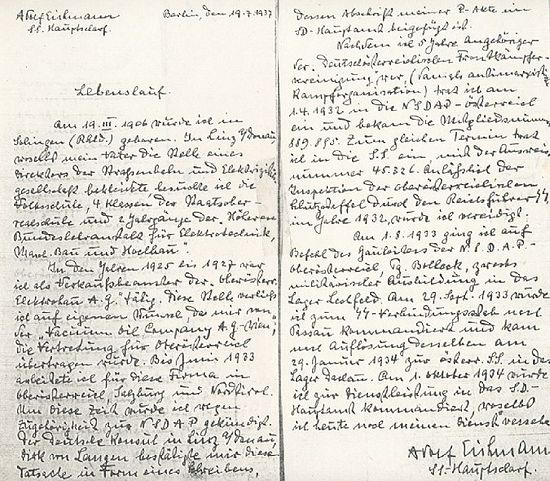 Adolf Eichmann
SS-Hauptscharf.
Berlin, den 19.7.1937
Lebenslauf.
Am 19. III. 1906 wurde ich in
Solingen (Rhld.) geboren. In Linz a/Donau,
woselbst mein Vater die Stelle eines
Direktors der Strassenbahn und Elektrizitäts-
gesellschaft bekleidete besuchte ich die
Volksschule, 4 Klassen der Staatsober-
realschule und 2 Jahrgänge der "Höheren
Bundeslehranstalt für Elektrotechnik,
Masch. Bau und Hochbau".
In den Jahren 1925 bis 1927 war
ich als Verkaufsbeamter der "oberösterr.
Elektrobau A.G." tätig. Diese Stelle verliess
ich auf eigenen Wunsch da mir von
der "Vacuum Oil Company A.G. Wien",
die Vertretung für Oberösterreich
übertragen wurde. Bis Juni 1933
arbeitete ich für diese Firma in
Oberösterreich, Salzburg und Nordtirol.
Um diese Zeit wurde ich wegen
Zugehörigkeit zur NSDAP gekündigt.
Der deutsche Konsul in Linz a/Donau,
Dirk von Langen bestätigte mir diese
Tatsache in Form eines Schreibens,
dessen Abschrift meiner P-Akte im
SD-Hauptamt beigefügt ist.
Nachdem ich 5 Jahre Angehöriger
der Deutschösterreichischen Frontkämpfer-
vereinigung war, (
Kampforganisation) trat ich am
1.4.1932 in die NSDAP-Österreich
ein und bekam die Mitgliedsnummer
889.895. Zum gleichen Termin trat
ich in die SS ein, mit der Ausweis
nummer 45.326. Anlässlich der
Inspektion der oberösterreichischen
Schutzstaffel durch den Reichsführer SS
im Jahre 1932, wurde ich vereidigt.
Am 1.8.1933 ging ich auf
Befehl des Gauleiters der N.S.D.A.P.-
Oberösterreich, Pg. Bolleck, zwecks
militärischer Ausbildung in das
Lager Lechfeld. Am 29. Sept. 1933 wurde
ich zum SS-Verbindungsstab nach
Passau kommandiert und kam
nach Auflösung desselben am
29. Januar 1934 zur österr. SS. in das
Lager Dachau. Am 1. Oktober 1934 wurde
ich zur Dienstleistung in das S.D.-
Hauptamt kommandiert, woselbst
ich heute noch meinen Dienst versehe.
Adolf Eichmann
SS-Hauptscharf.